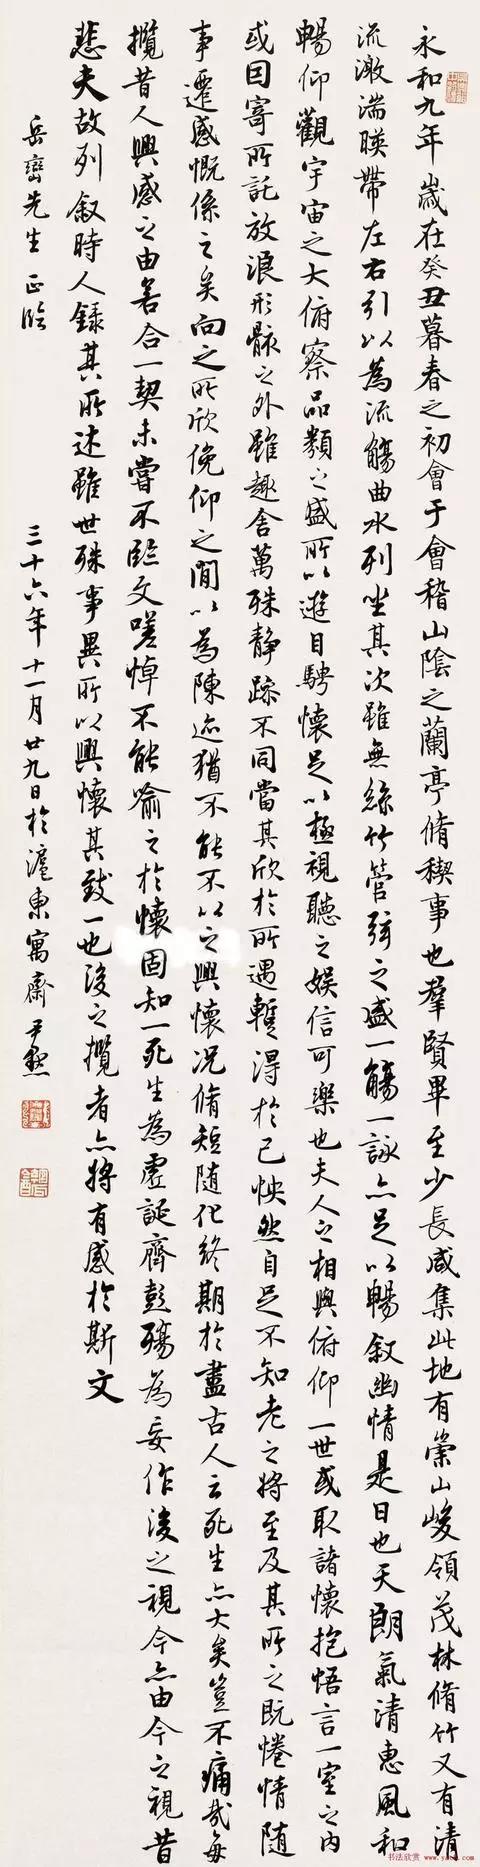 永和九年歲在癸丑暮春之初會于會稽山陰之蘭亭脩稧事也羣賢畢至少長咸集此地有崇山峻領茂林脩竹又有清
流激湍暎帶左右引以為流觴曲水列坐其次雖無絲竹管弦之盛一觴一詠亦足以暢叙幽情是日也天朗氣清惠風和
暢仰觀宇宙之大俯察品類之盛所以遊目騁懷足以極視聽之娛信可樂也夫人之相與俯仰一世或取諸懷抱悟言一室之內
或因寄所託放浪形骸之外雖趣舍萬殊静躁不同當其欣於所遇蹔得於己怏然自足不知老之將至及其所之既惓情隨
事遷感慨係之矣向之所欣俛仰之閒以為陳迹猶不能不以之興懷况脩短隨化終期於盡古人云死生亦大矣豈不痛哉每
攬昔人興感之由若合一契未嘗不臨文嗟悼不能喻之於懷固知一死生為虛誕齊彭殤為妄作後之視今亦由今之視昔
悲夫故列叙時人錄其所述雖世殊事異所以興懷其致一也後之攬者亦將有感於斯文
岳巒先生正臨
三十六年十一月廿九日於滬東寓齋尹默
书法欣赏